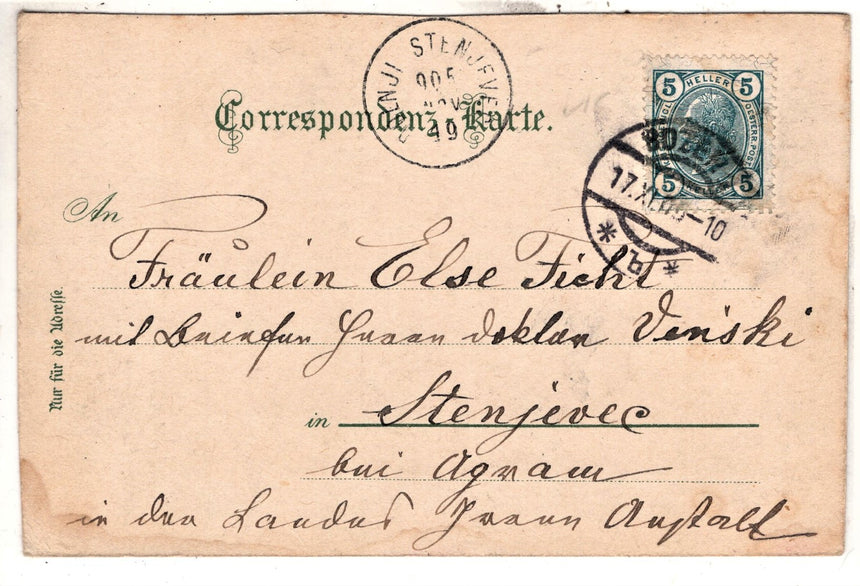 Correspondenz-Karte.
STENJEVEC
905
NOV
19
5 HELLER 5
5 HELLER 5
BOZEN
17.XI.05–10
An
Fräulein Else Ficht
mit Briefen Herrn Doktor Venski
in Stenjevec
bei Agram
in der Landes Irren Anstalt
Nur für die Adresse.